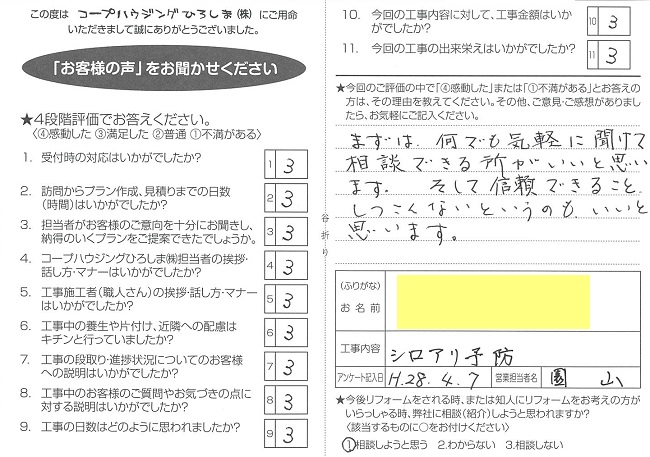 この度は コープハウジングひろしま(株) にご用命
いただきまして誠にありがとうございました。
「お客様の声」をお聞かせください
★4段階評価でお答えください。
〈④感動した ③満足した ②普通 ①不満がある〉
1. 受付時の対応はいかがでしたか?
1 3
2. 訪問からプラン作成、見積りまでの日数
(時間)はいかがでしたか?
2 3
3. 担当者がお客様のご意向を十分にお聞きし、
納得のいくプランをご提案できたでしょうか。
3 3
4. コープハウジングひろしま㈱担当者の挨拶・
話し方・マナーはいかがでしたか?
4 3
5. 工事施工者(職人さん)の挨拶・話し方・マナー
はいかがでしたか?
5 3
6. 工事中の養生や片付け、近隣への配慮は
キチンと行っていましたか?
6 3
7. 工事の段取り・進捗状況についてのお客様
への説明はいかがでしたか?
7 3
8. 工事中のお客様のご質問やお気づきの点に
対する説明はいかがでしたか?
8 3
9. 工事の日数はどのように思われましたか?
9 3
谷折り
10. 今回の工事内容に対して、工事金額はいか
がでしたか?
10 3
11. 今回の工事の出来栄えはいかがでしたか?
11 3
★今回のご評価の中で「④感動した」または「①不満がある」とお答え
の方は、その理由を教えてください。その他、ご意見・ご感想がありまし
たら、お気軽にご記入ください。
まずは 何でも気軽に聞けて
相談できる所がいいと思い
ます。 そして信頼できること
しつこくないというのも いいと
思います。
(ふりがな)
お名前
工事内容 シロアリ予防
アンケート記入日 H.28.4.7 営業担当者名 園山
★今後リフォームをされる時、または知人にリフォームをお考えの方が
いらっしゃる時、弊社に相談(紹介)しようと思われますか?
〈該当するものに○をお付けください〉
①相談しようと思う 2.わからない 3.相談しない